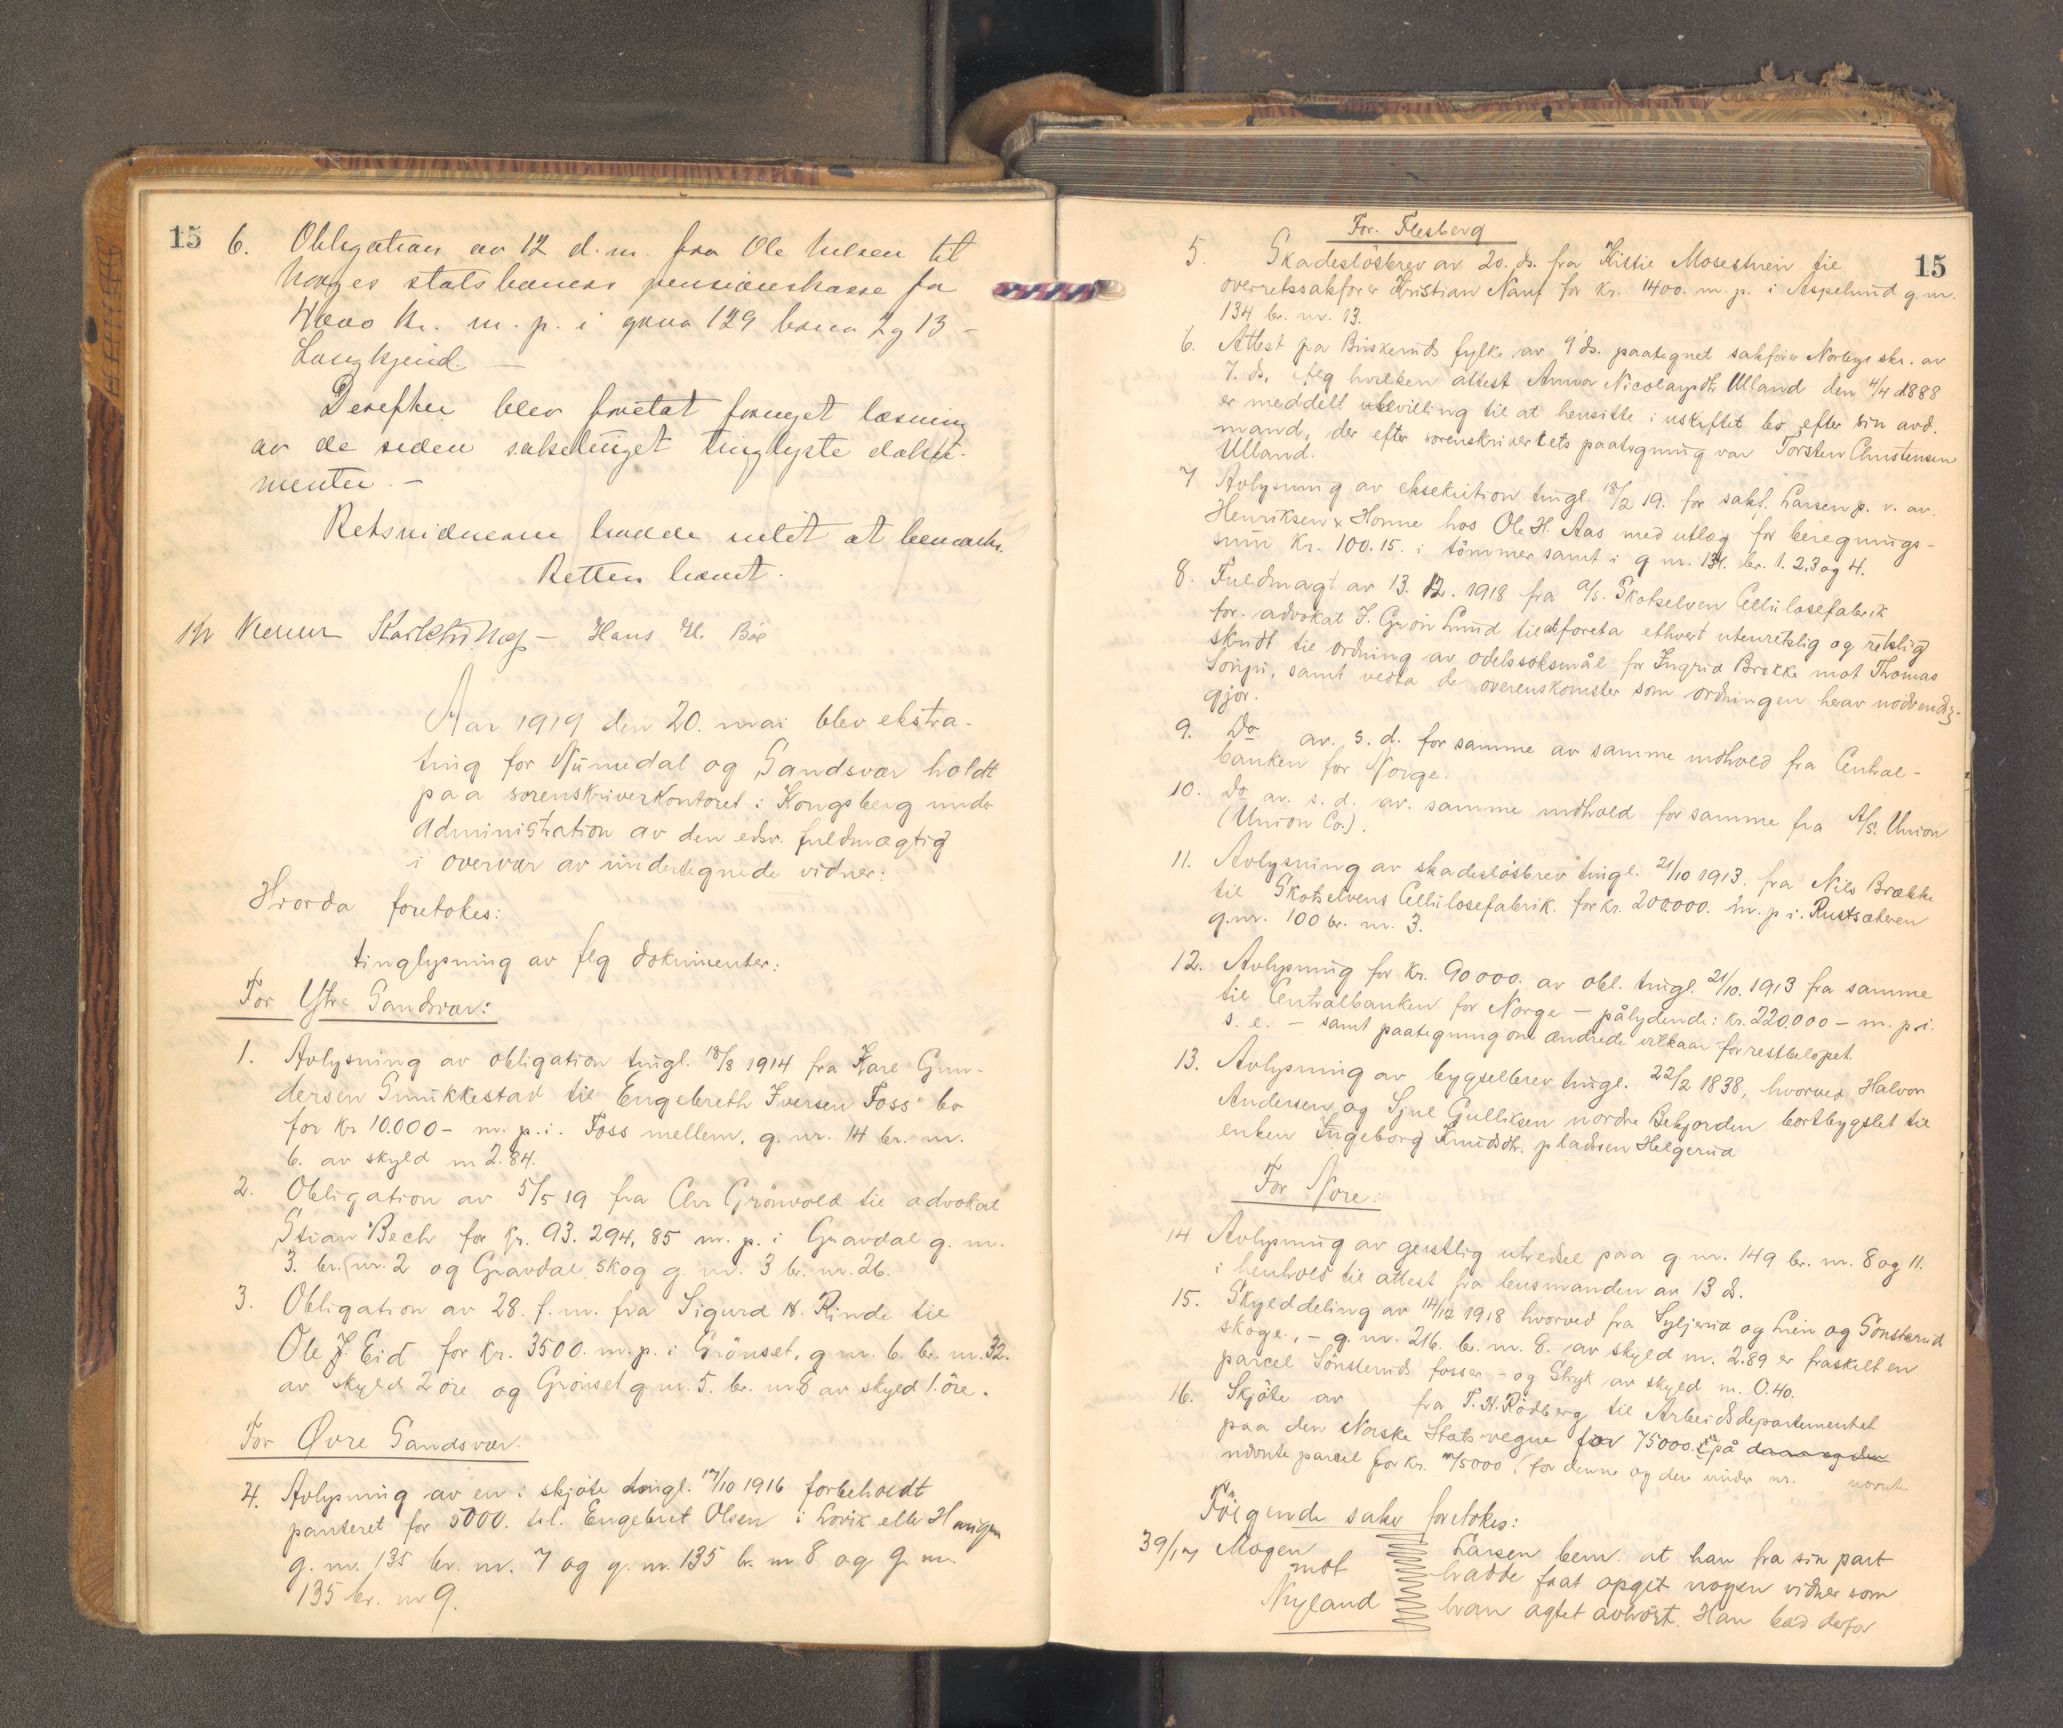 15
6. Obligation av 12 d.m. fra Ole Nelsen til
Norges statsbaners pensionskasse for
4000 kr. m. p. i gaard 129 bruk 2 g 13 -
Langkjend. -
Derefter blev foretat fornyet læsning
av de siden saksetinget tinglyste doku-
menter. -
Retsvidnerne hadde intet at bemærke.
Retten hævet.
Hans H. Bøe
Aar 1919 den 20. mai blev ekstra-
ting for Numedal og Sandsvær holdt
paa sorenskriverkontoret i Kongsberg under
administration av den edsv. fuldmægtig
i overvær av undertegnede vidner:
Hvorda foretokes:
tinglysning av flg dokumenter:
For Ytre Sandsvær:
1. Avlysning av obligation tingl. 18/8 1914 fra Karl Gun-
dersen Snukkestad til Engebreth Iversen Foss' bo
for kr 10.000- m. p. i. Foss mellem, g. nr. 14 br. nr.
6. av skyld m 2.84.
2. Obligation av 5/5 19 fra Chr Grönvold til advokat
Stian Bech for kr. 93.294,85 m. p. i Gravdal g. nr.
3. br. nr. 2 og Gravdal skog g. nr. 3 br. nr. 26.
3. Obligation av 28. f. m. fra Sigurd K. Rinde til
Ole J. Eid for kr. 3500. m. p. i Grönset, g nr. 6. br. nr. 32.
av skyld 2 öre og Grönset g nr. 5. br. nr 8 av skyld 1. öre.
For Øvre Sandsvær.
4. Avlysning av en i skjöte tingl. 17/10 1916 forbeholdt
panteret for 5000. til. Engebret Olsen i Lovik eller Haugen
g. nr. 135 br. nr. 7 og g. nr. 135 br. nr 8 og g. nr.
135 br. nr 9.
For. Flesberg
15
5. Skadeslösbrev av 20. ds. fra Kittil Mosestuen til
overretssakförer Kristian Nanf for kr. 1400. m. p. i Aspelund g. nr.
134 br. nr. 13.
6. Attest fra Buskeruds fylke av 9 ds. paategnet sakförer Norbys skr. av
7. ds. ifлg hvilken attest Anna Nicolaysdtr Ulland den 4/4 1888
er meddelt bevilling til at hensitte i uskiftet bo efter sin avd.
mand, der efter sorenskriverens paategning var Torsten Christensen
Ulland.
7 Avlysning av eksekution tingl. 18/2 19. for sakf. Larsen p. v. av.
Henriksen & Horne hos Ole H. Aas med utlæg for beregnings-
sum kr. 100.15. i tömmer samt i g nr. 131. br. 1. 2, 3 og 4.
8. Fuldmagt av 13. 12. 1918 fra a/s. Skotselven Cellulosefabrik
for. advokat J. Grön Lund til at foreta ethvert utenretslig og retslig
skridt til ordning av odelssöksmål for Ingrid Brekke mot Thomas
Songli, samt vedta de overenskomster som ordningen herav nödvendig-
gjör.
9. Do av. s. d. for samme av samme indhold fra Central-
banken for Norge.
10. Do av. s. d. av. samme indhold for samme fra A/S. Union
(Union Co.).
11. Avlysning av skadeslösbrev tingl. 21/10 1913. fra Nils Brække
til Skotselvens Cellulosefabrik. for kr. 200.000. m. p i. Rustsæteren
g. nr. 100 br. nr. 3.
12. Avlysning for kr. 90000. av obl. tingl. 21/10. 1913 fra samme
til Centralbanken for Norge - pålydende: kr. 220.000 - m. p. i.
s. e. - samt paategning om ændrede vilkaar for restbelöpet.
13. Avlysning av bygselbrev tingl. 22/2 1838, hvorved Halvor
Andersen og Sjul Gulliksen nordre Bekjorden bortbygslet til
enken Ingeborg Knudsdtr. pladsen Helgerud
For Nore:
14 Avlysning av geistlig utredsel paa g nr. 149 br. nr. 8 og 11.
i henhold til attest fra lensmanden av 13 ds.
15. Skylddeling av 14/12 1918 hvorved fra Syljerud og Lien og Sönsterud
skoge, - g. nr. 216. br. nr. 8. av skyld m. 2.89 er fraskilt en
parcel Sönsteruds fosser - og Stryk av skyld m. 0.40.
16. Skjöte av fra T. H. Rödberg til Arbeidsdepartementet
paa den Norske Stats vegne for 75000. på
nævnte parcel for kr. 75000 (for denne og den under nr. nævnte
Fölgende saker foretokes:
39/17 Mogen Larsen bem. at han fra sin part
mot hadde faat opgit nogen vidner som
Nyland han agtet avhört. Han bad derfor